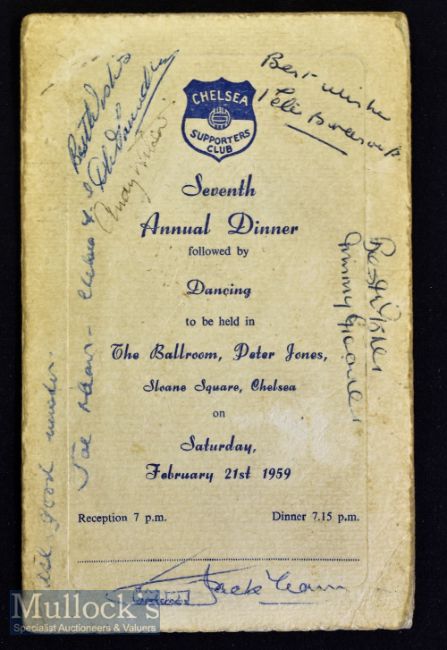 CHELSEA
SUPPORTERS
CLUB
Best wishes
Best wishes
Seventh
Annual Dinner
followed by
Dancing
to be held in
The Ballroom, Peter Jones,
Sloane Square, Chelsea
on
Saturday,
February 21st 1959
Reception 7 p.m. Dinner 7.15 p.m.
Best Wishes
Jimmy Greaves
Chelsea
good
Jack
Mullock's
Specialist Auctioneers & Valuers